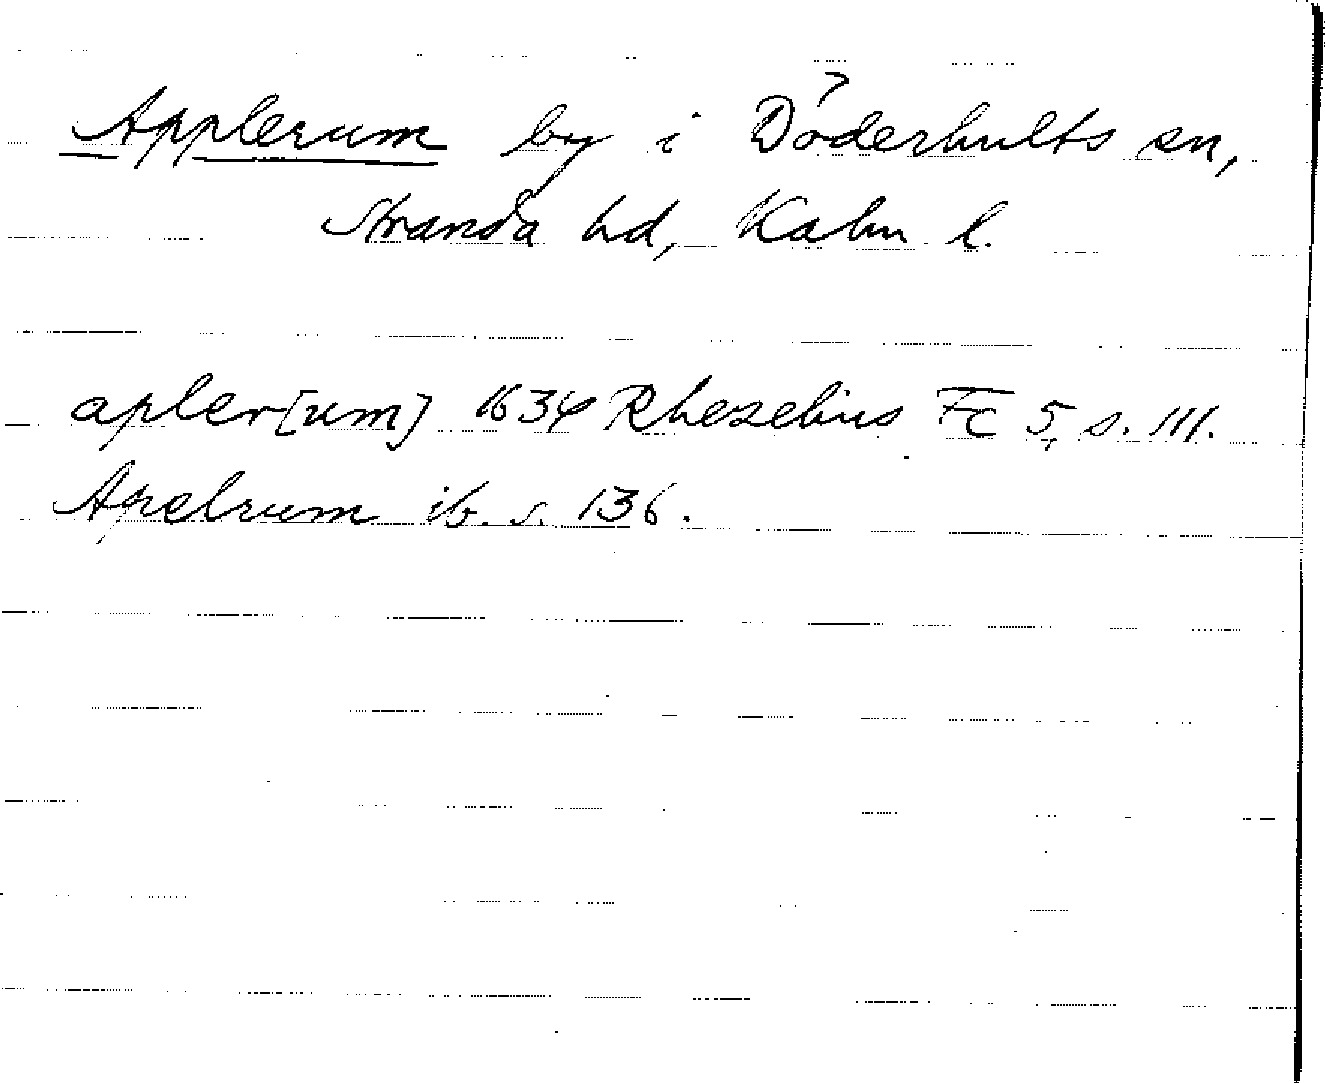 Applerum by i Döderhults sn,
Stranda hd, Kalm l.
apler[um] 1634 Rhezelius Fc 5, s. 111.
Apelrum ib. s. 136.